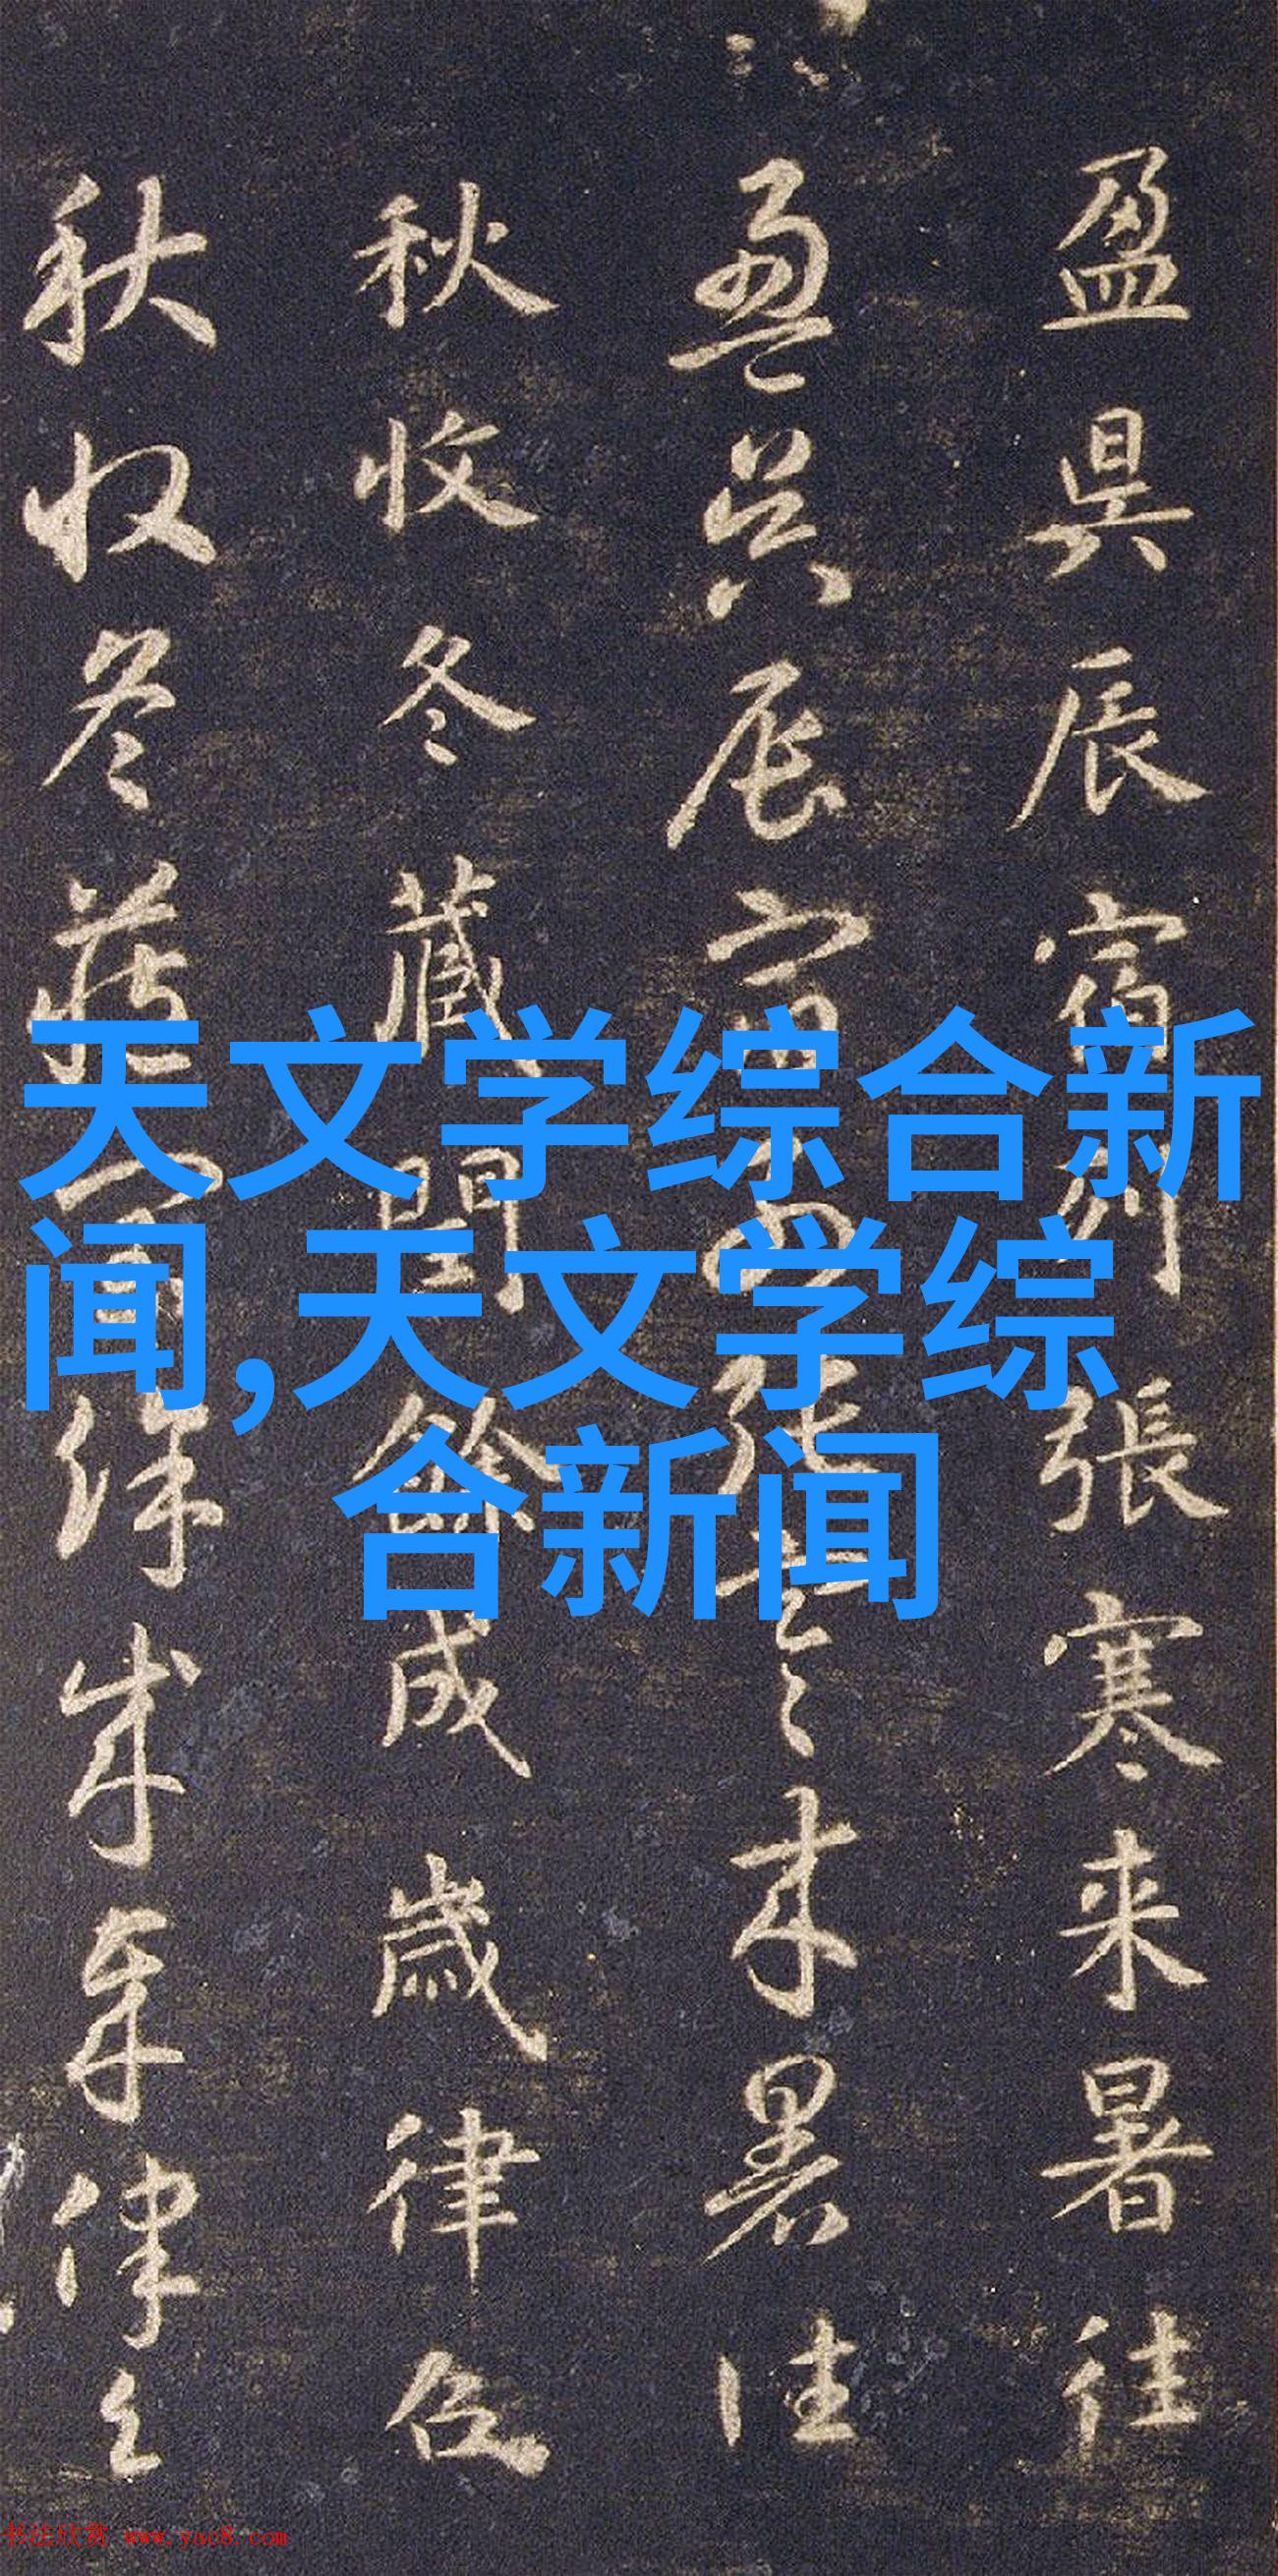 盈昃辰宿列張寒来暑往
盈昃辰宿列張寒来暑往
秋收冬藏閏餘成歲律呂
秋收冬藏閏餘成歲律呂
天文学综合新
闻,天文学综
合新闻
书法欣赏 www.yac8.com